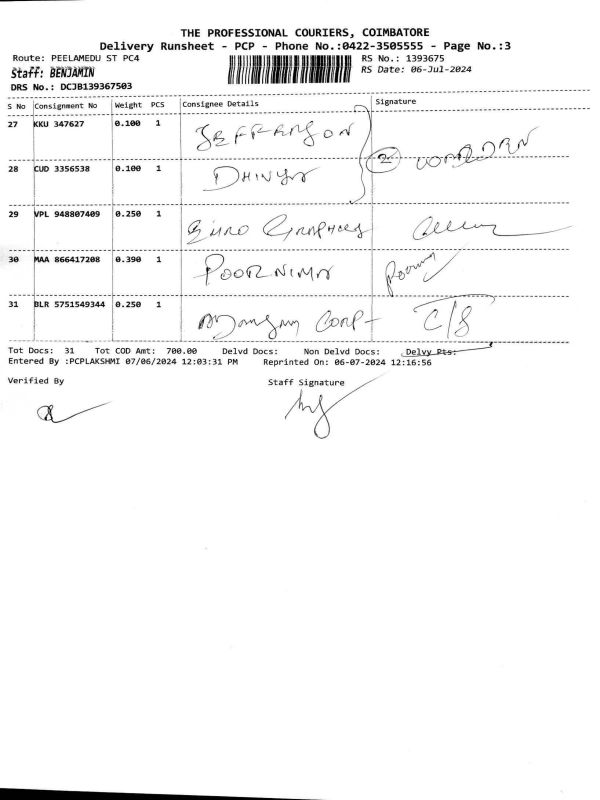 THE PROFESSIONAL COURIERS, COIMBATORE
Delivery Runsheet - PCP - Phone No.:0422-3505555 - Page No.:3
Route: PEELAMEDU ST PC4 RS No.: 1393675
Staff: BENJAMIN RS Date: 06-Jul-2024
DRS No.: DCJB139367503
S No Consignment No Weight PCS Consignee Details Signature
27 KKU 347627 0.100 1
28 CUD 3356538 0.100 1 DHIVYA 2
29 VPL 948807409 0.250 1 EURO GRAPHICS
30 MAA 866417208 0.390 1 POORNIMA
31 BLR 5751549344 0.250 1 CORP- C/S
Tot Docs: 31 Tot COD Amt: 700.00 Delvd Docs: Non Delvd Docs: Delvy Pts:
Entered By :PCPLAKSHMI 07/06/2024 12:03:31 PM Reprinted On: 06-07-2024 12:16:56
Verified By Staff Signature